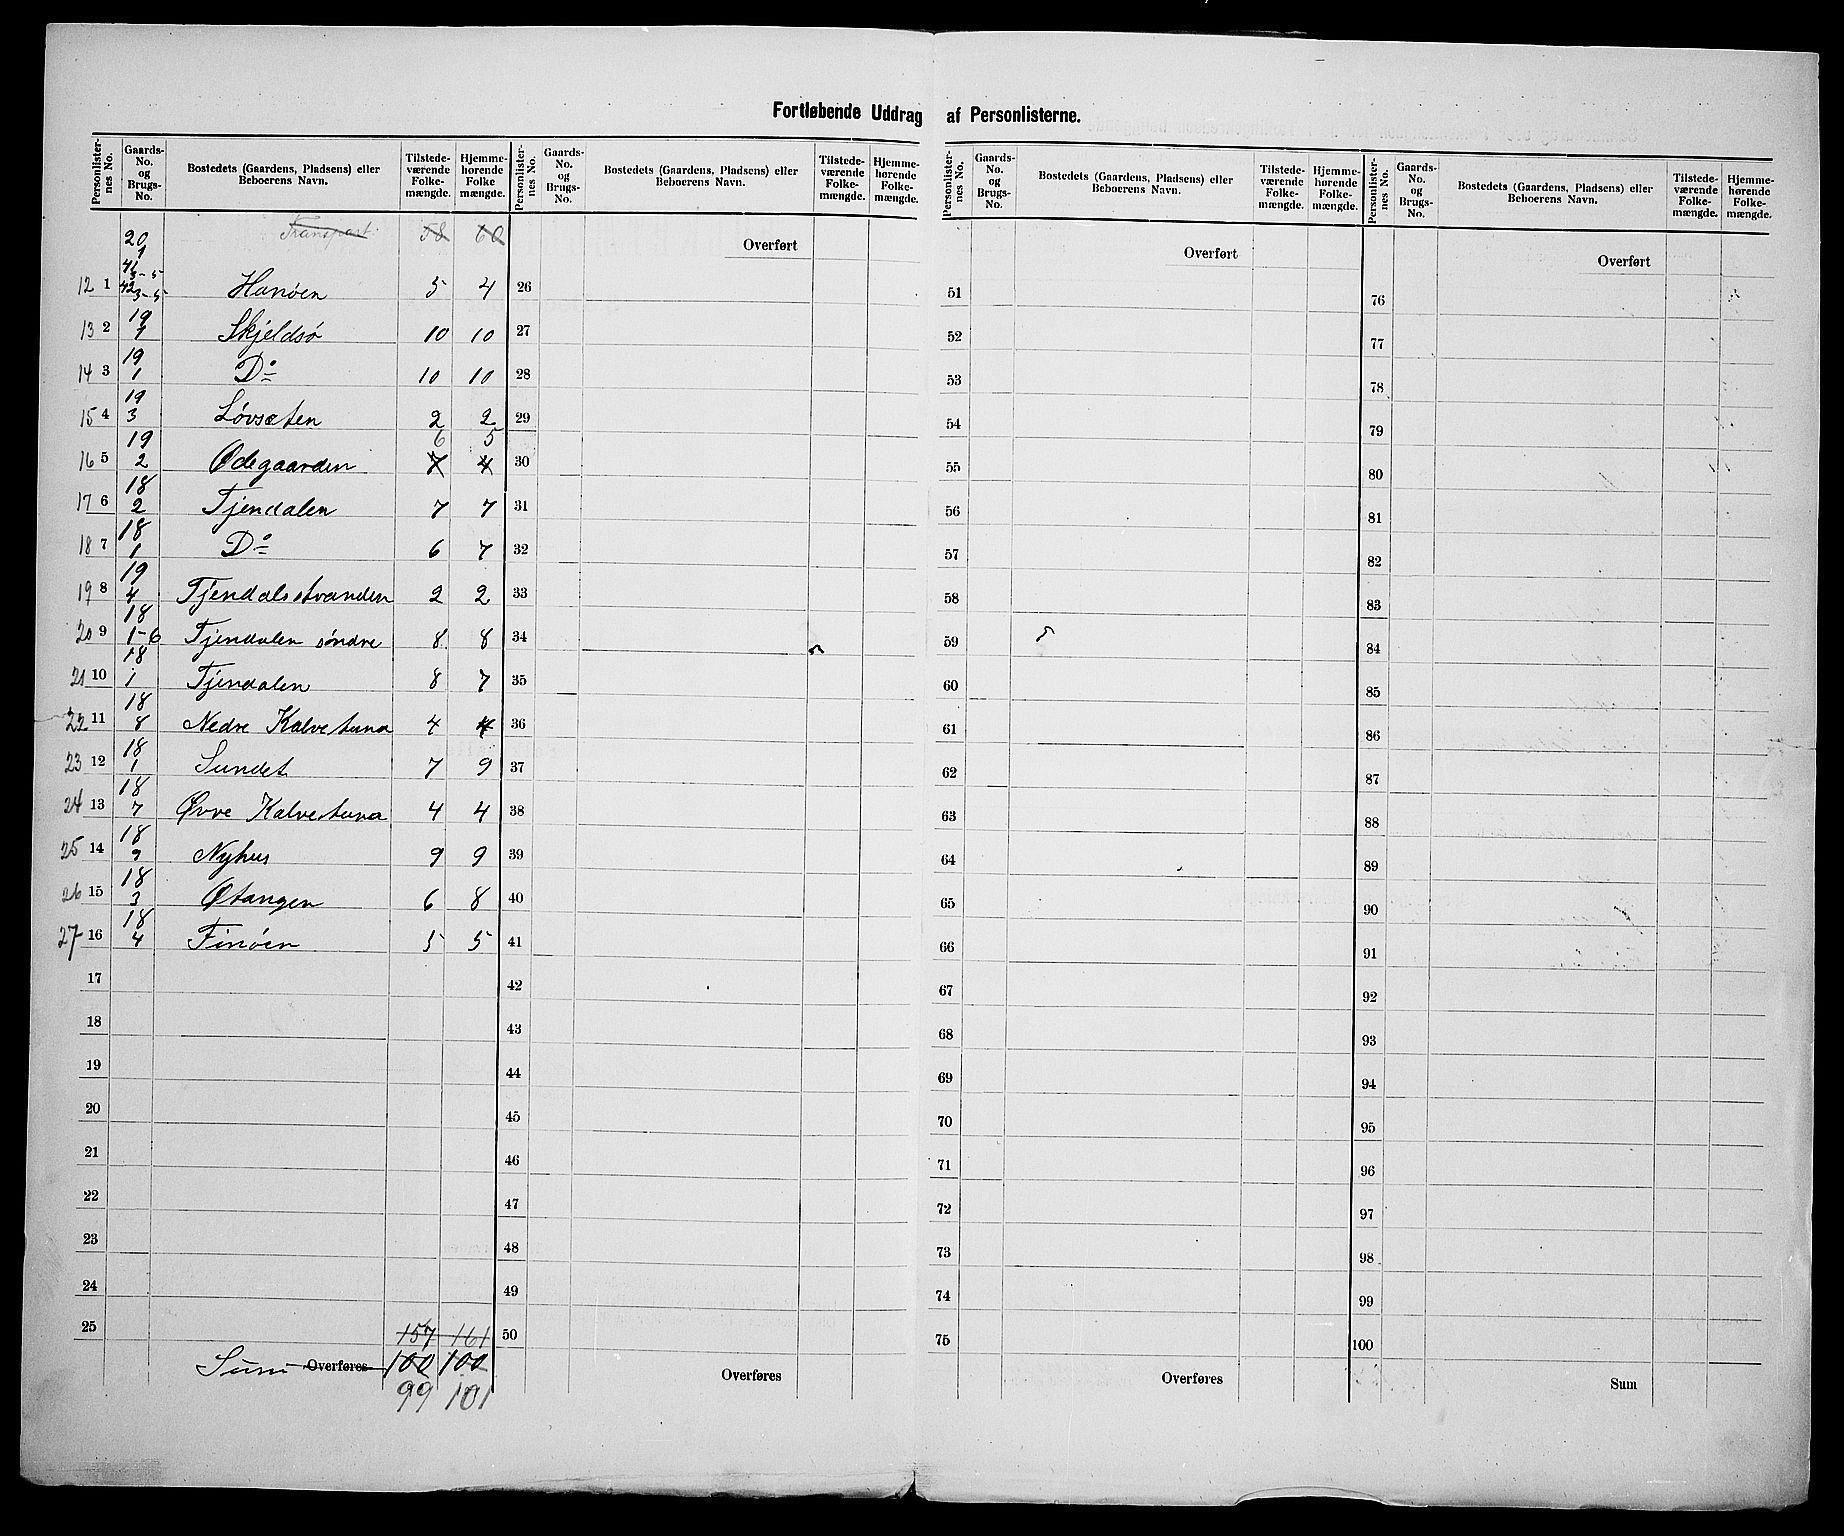 Fortløbende Uddrag af Personlisterne.
Personlisternes No. Gaards-No. og Brugs-No. Bostedets (Gaardens, Pladsens) eller Beboerens Navn. Tilstedeværende Folkemængde. Hjemmehørende Folkemængde.
Transport 58 60
12 1 20 1 41 3-5 42 3-5 Hanöen 5 4
13 2 19 1 Skjeldsø 10 10
14 3 19 1 Do 10 10
15 4 19 3 Lövsæten 2 2
16 5 19 2 Ødegaarden 7 4 6 5
17 6 18 2 Tjendalen 7 7
18 7 18 1 Do 6 7
19 8 19 4 Tjendalsstranden 2 2
20 9 18 1-6 Tjendalen söndre 8 8
21 10 18 1 Tjendalen 8 7
22 11 18 8 Nedre Kalvetuna 4 4
23 12 18 1 Sundet 7 9
24 13 18 7 Øvre Kalvetuna 4 4
25 14 18 9 Nyhus 9 9
26 15 18 3 Øtangen 6 8
27 16 18 4 Finöen 5 5
17
18
19
20
21
22
23
24
25 157 161
Sum Overføres 100 100
99 101
Personlisternes No. Gaards-No. og Brugs-No. Bostedets (Gaardens, Pladsens) eller Beboerens Navn. Tilstedeværende Folkemængde. Hjemmehørende Folkemængde.
Overført
26
27
28
29
30
31
32
33
34
35
36
37
38
39
40
41
42
43
44
45
46
47
48
49
50
Overføres
Personlisternes No. Gaards-No. og Brugs-No. Bostedets (Gaardens, Pladsens) eller Beboerens Navn. Tilstedeværende Folkemængde. Hjemmehørende Folkemængde.
Overført
51
52
53
54
55
56
57
58
59
60
61
62
63
64
65
66
67
68
69
70
71
72
73
74
75
Overføres
Personlisternes No. Gaards-No. og Brugs-No. Bostedets (Gaardens, Pladsens) eller Beboerens Navn. Tilstedeværende Folkemængde. Hjemmehørende Folkemængde.
Overført
76
77
78
79
80
81
82
83
84
85
86
87
88
89
90
91
92
93
94
95
96
97
98
99
100
Sum